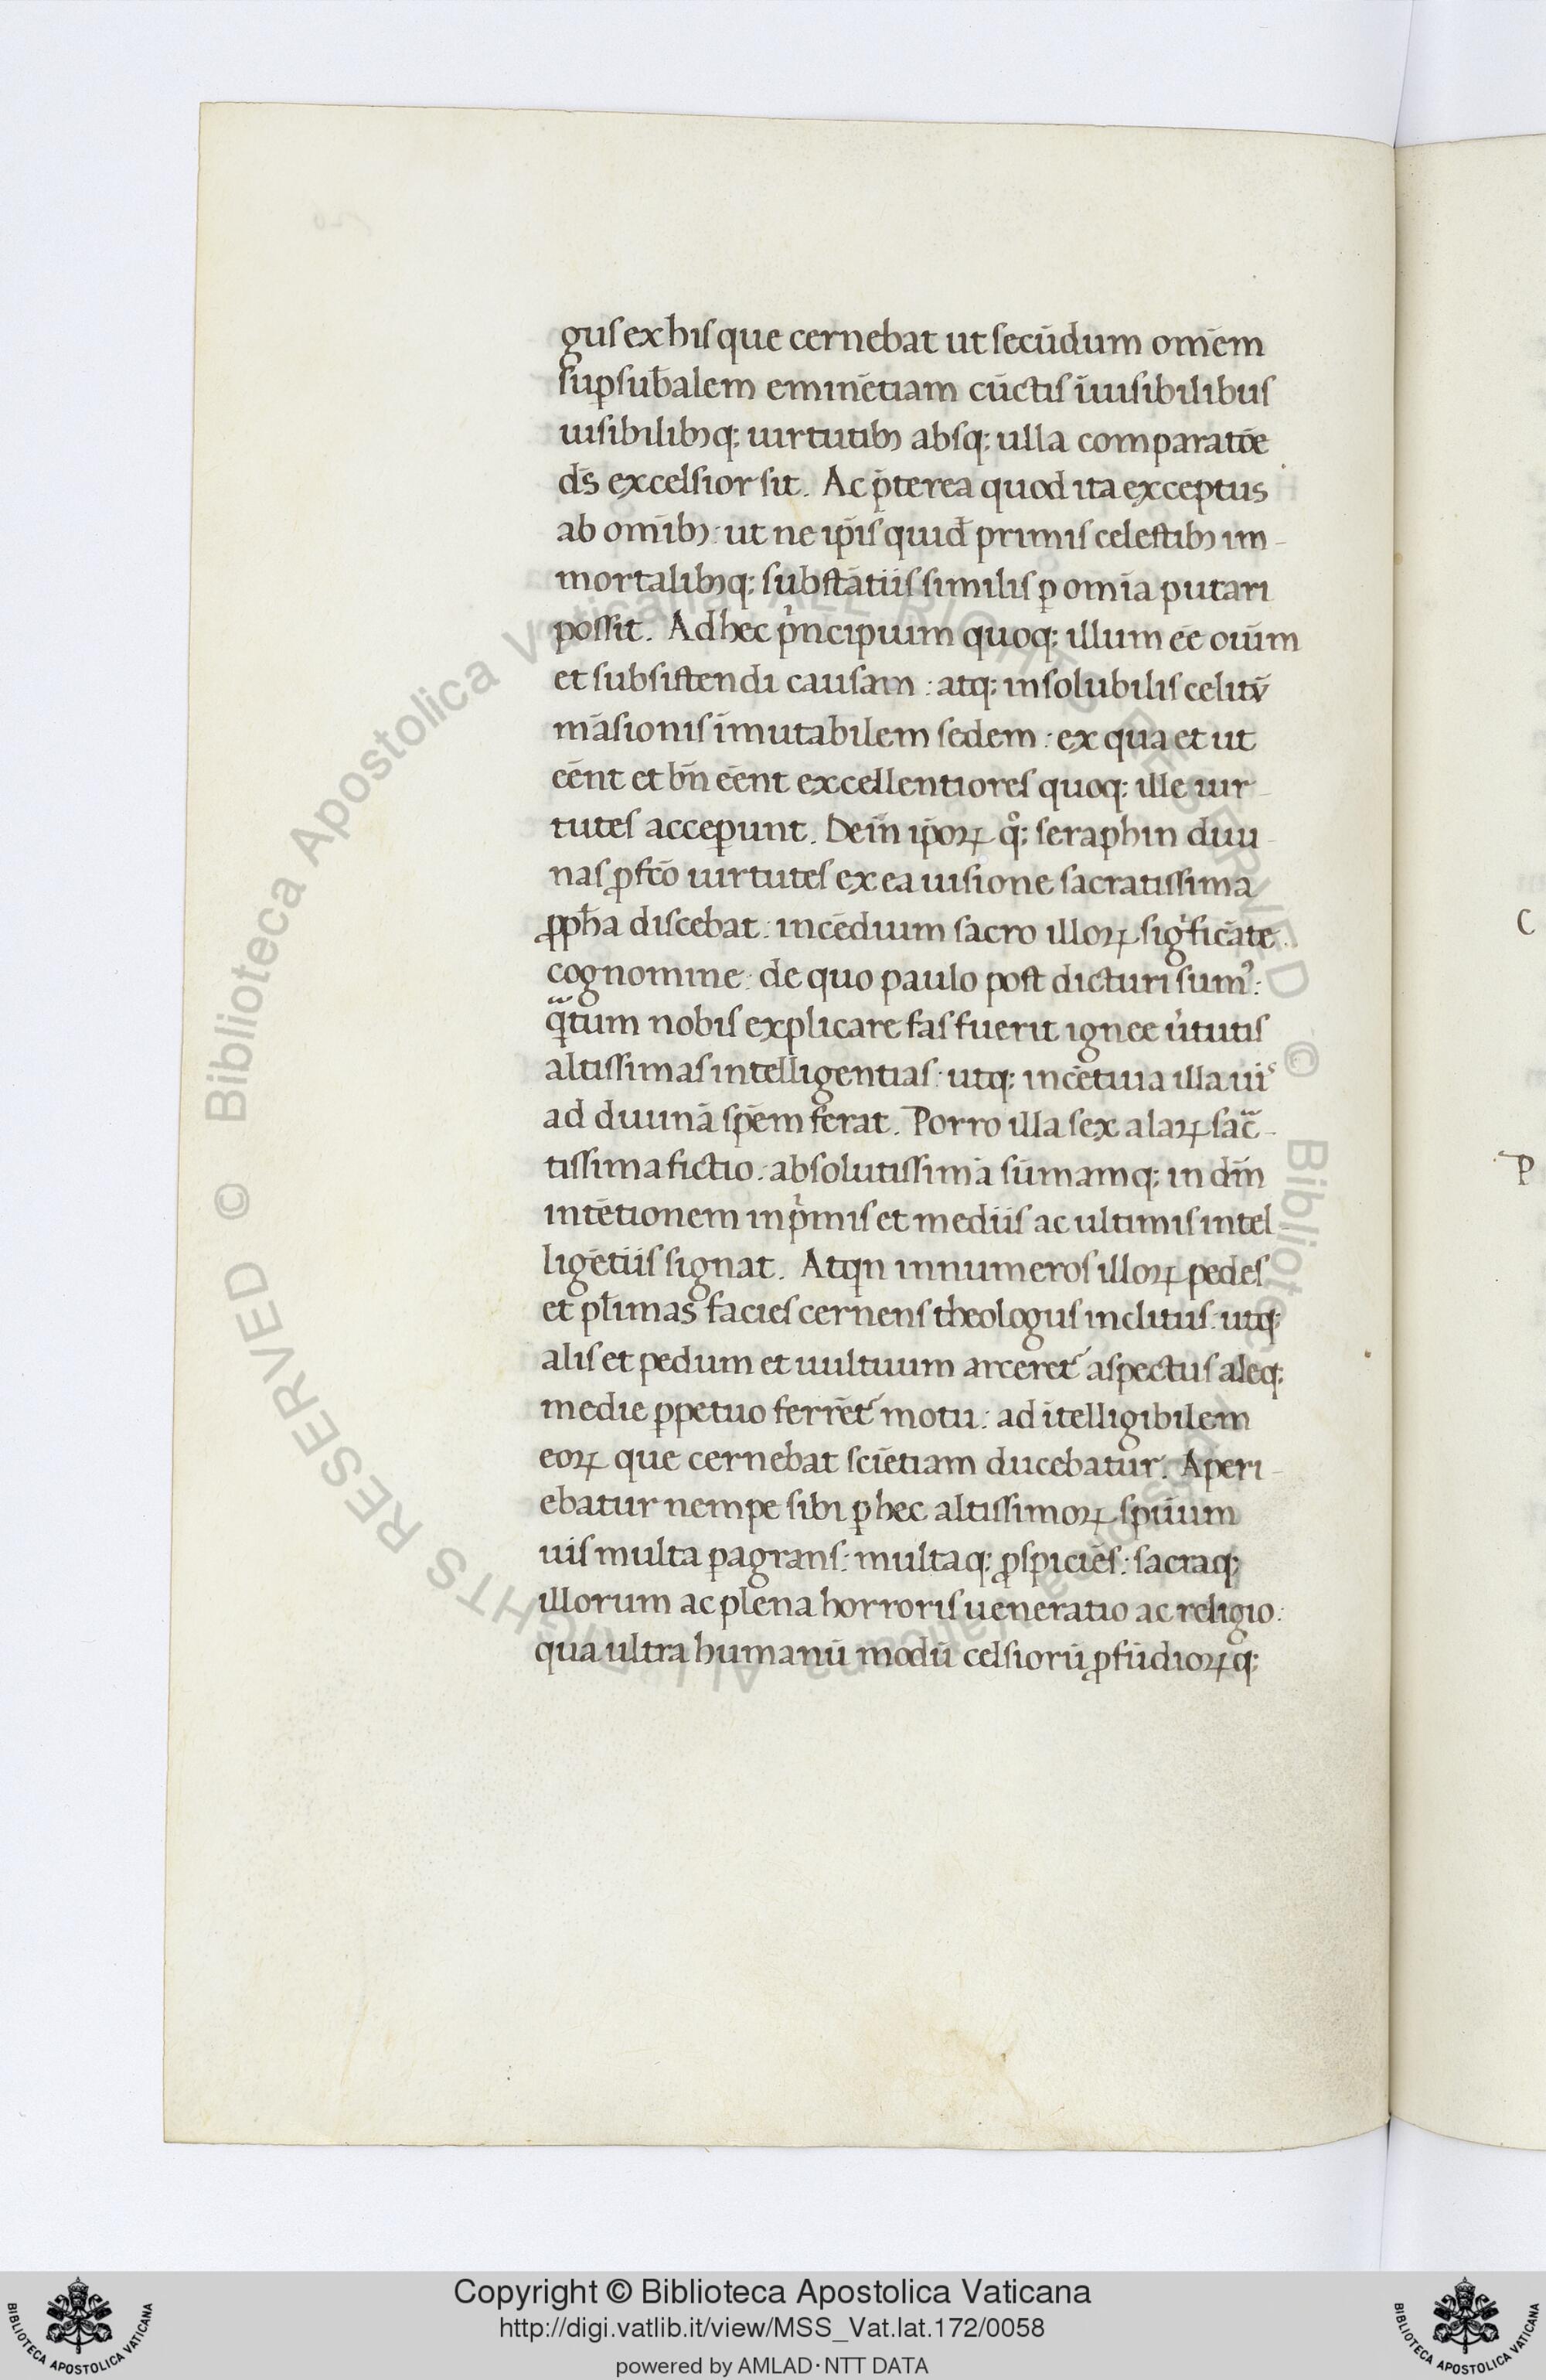 gus ex his que cernebat ut secūdum om̄em
suꝑsub̄alem eminētiam cūctis īuisibilibus
uisibilibꝫq; uirtutibꝫ absq; ulla comparatōe
ds̄ excelsior sit. Ac p̄terea quod ita exceptus
ab om̄ibꝫ: ut ne ip̄is quid̄ primis celestibꝫ im-
mortalibꝫq; substātiis similis ꝑ om̄ia putari
possit. Ad hec pⁱncipium quoq; illum eē oīum
et subsistendi causam: atq; insolubilis celitū
māsionis īmutabilem sedem: ex qua et ut
eēnt et bn̄ eēnt excellentiores quoq; ille uir-
tutes acceꝑunt. Dein̄ ip̄oꝝ qͦ; seraphin diui-
nas ꝓfcō uirtutes ex ea uisione sacratissima
ꝓpħa discebat: incēdium sacro illoꝝ sigⁱficāte
cognomine: de quo paulo post dicturi sumꝰ:
qᷓtum nobis explicare fas fuerit ignee uⁱtutis
altissimas intelligentias: utq; incētiua illa uiˢ
ad diuinā spēm ferat. Porro illa sex alaꝝ sac̄-
tissima fictio: absolutissimā sūmamq; in dm̄
intētionem in pⁱmis et mediis ac ultimis intel-
ligētiis signat. Atqn innumeros illoꝝ pedes
et pl̄imas facies cernens theologus inclitus: utq;
alis et pedum et uultuum arceret᷑ aspectus aleq;
medie ꝑpetuo ferrēt᷑ motu: ad ītelligibilem
eoꝝ que cernebat sciētiam ducebatur. Aperi-
ebatur nempe sibi ꝑ hec altissimoꝝ sp̄uum
uis multa ꝑagrans: multaq; ꝓspiciēs: sacraq;
illorum ac plena horroris ueneratio ac religio:
qua ultra humanū modū celsiorū ꝓfūdioꝝq;
C
P
© Biblioteca Apostolica Vaticana ALL RIGHTS RESERVED © Biblioteca Apostolica Vaticana ALL RIGHTS RESERVED
Copyright © Biblioteca Apostolica Vaticana
http://digi.vatlib.it/view/MSS_Vat.lat.172/0058
powered by AMLAD·NTT DATA
BIBLIOTECA APOSTOLICA VATICANA
BIBLIOTECA APOSTOLICA VATICANA